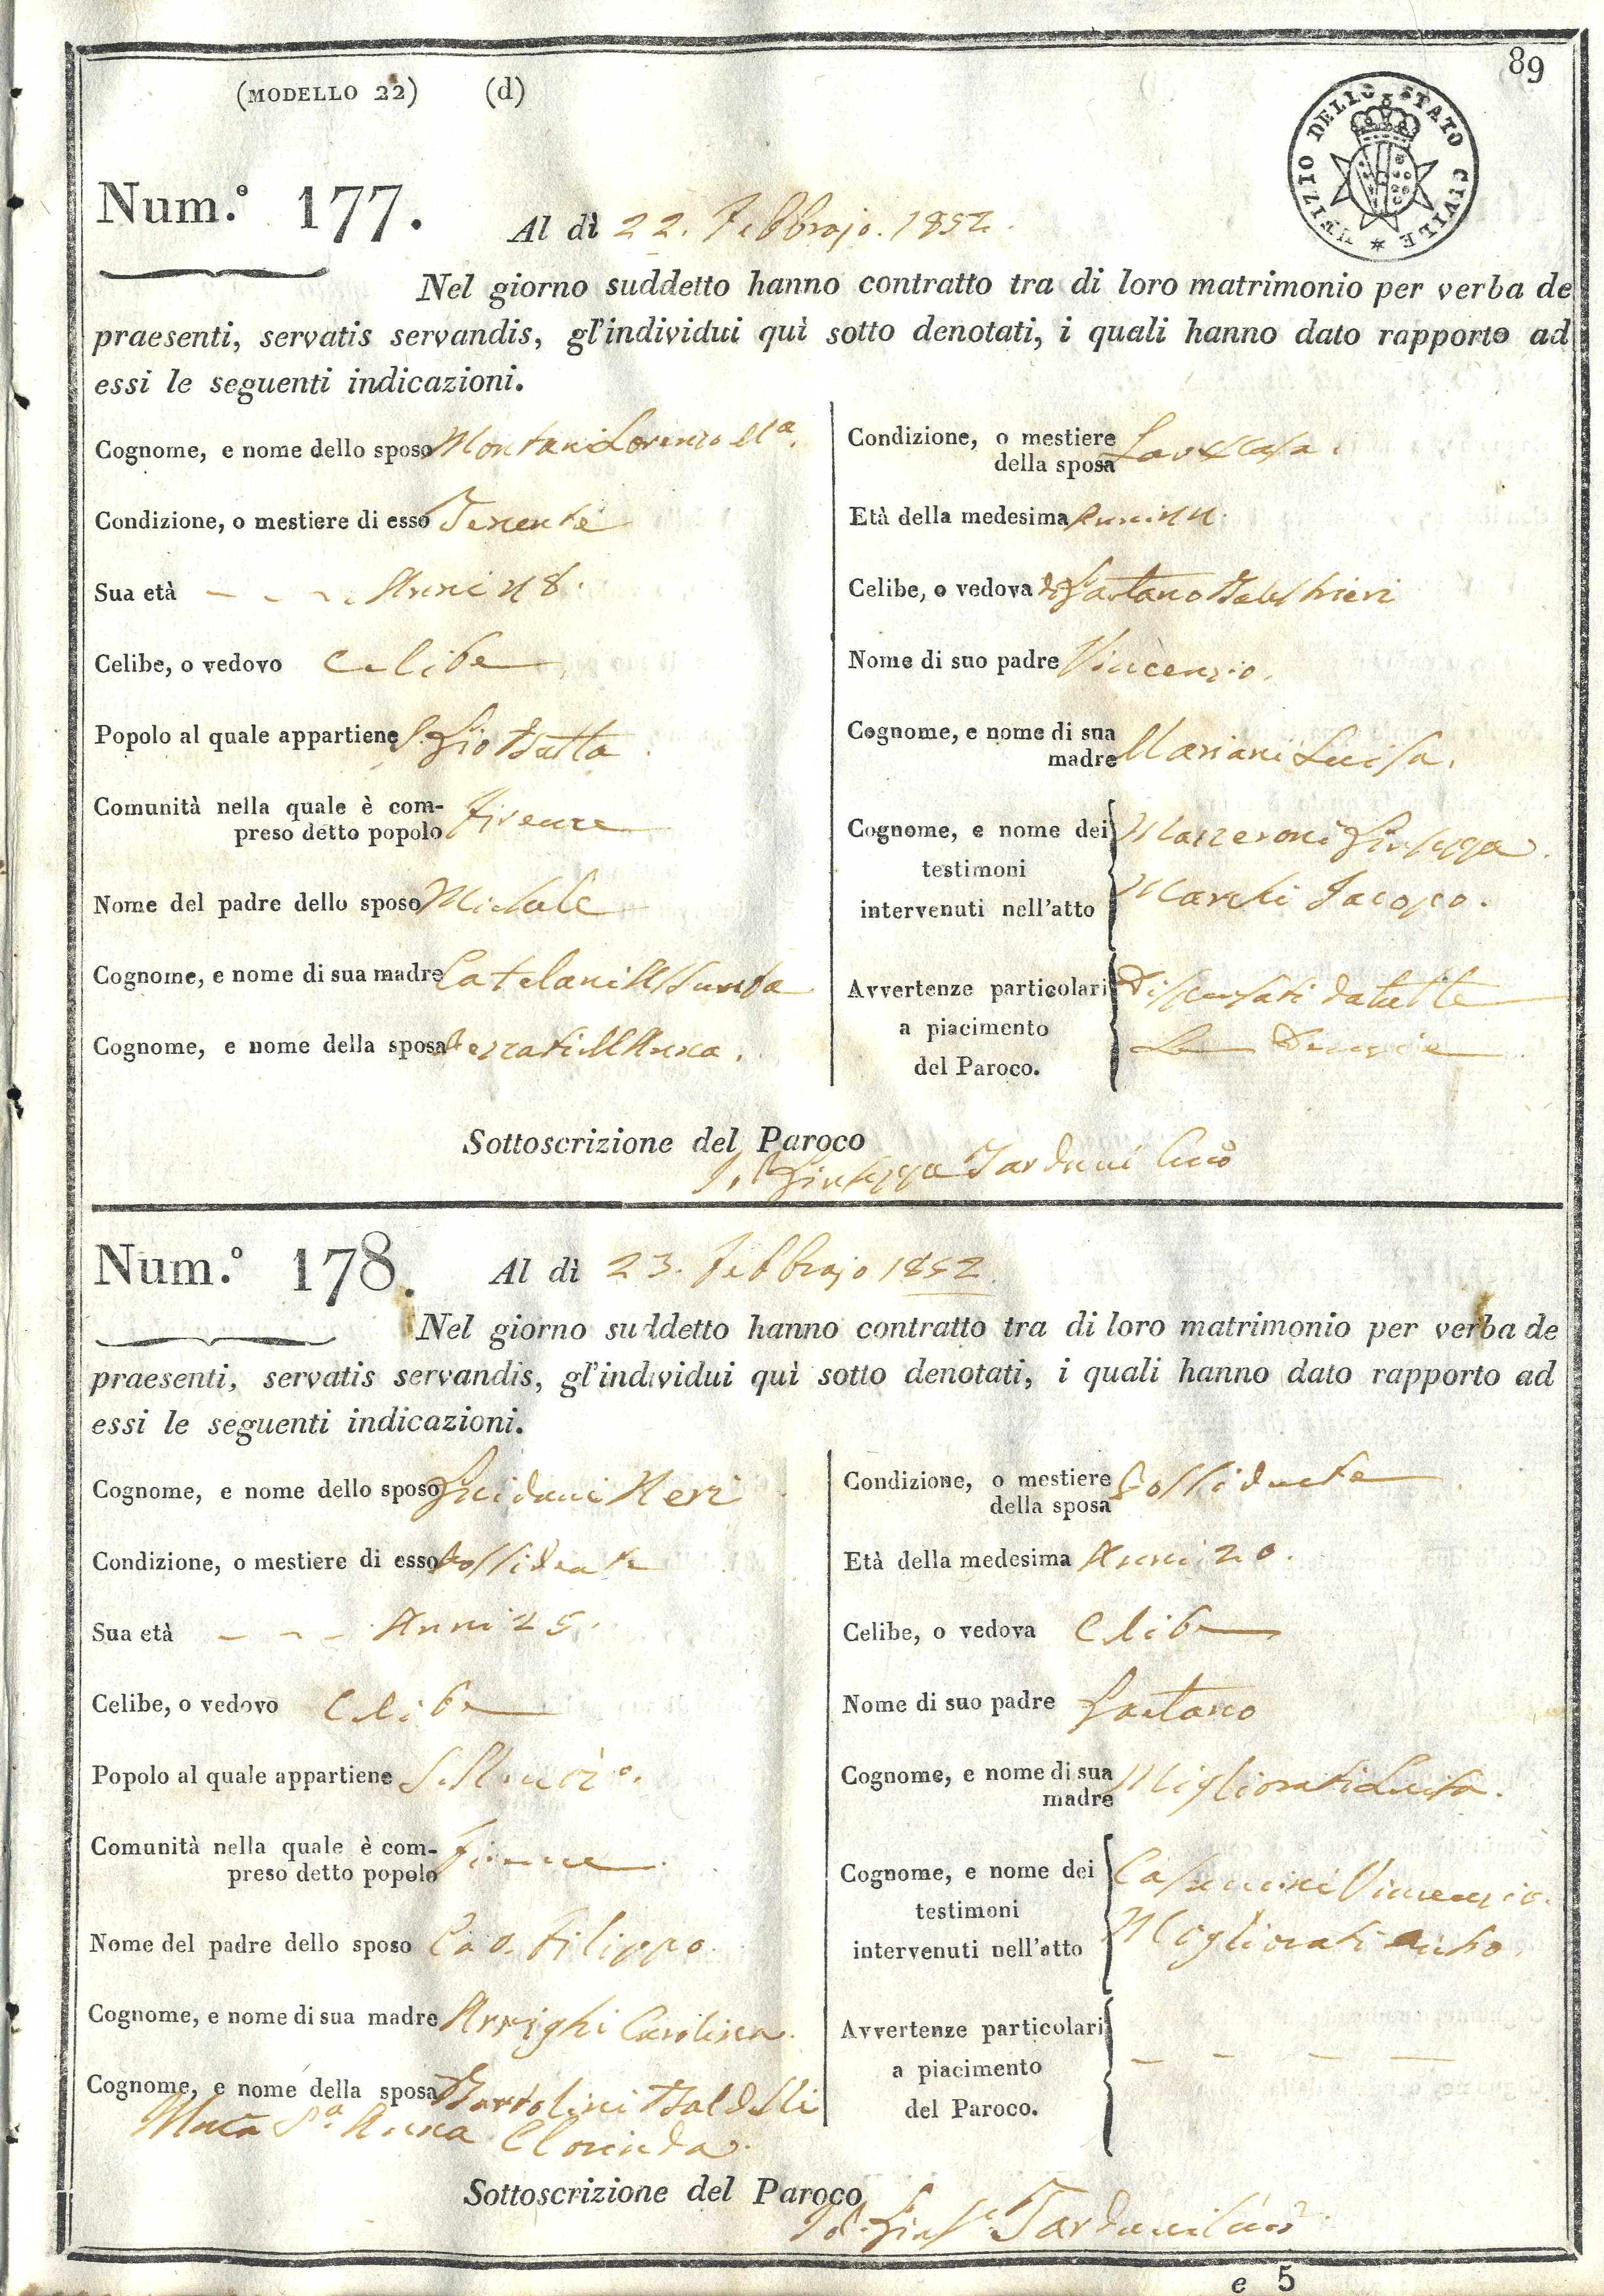 89
(MODELLO 22) (d)
UFIZIO DELLO STATO CIVILE *
Num.° 177. Al dì 22. Febbrajo. 1852.
Nel giorno suddetto hanno contratto tra di loro matrimonio per verba de
praesenti, servatis servandis, gl'individui quì sotto denotati, i quali hanno dato rapporto ad
essi le seguenti indicazioni.
Cognome, e nome dello sposo Montani Lorenzo Ma.
Condizione, o mestiere di esso Tenente
Sua età Anni
Celibe, o vedovo Celibe
Popolo al quale appartiene S. Gio Batta
Comunità nella quale è com-
preso detto popolo Firenze
Nome del padre dello sposo Michele
Cognome, e nome di sua madre Catelani Assunta
Cognome, e nome della sposa Anna.
Condizione, o mestiere
della sposa
Età della medesima Anni
Celibe, o vedova di Gaetano
Nome di suo padre Vincenzio.
Cognome, e nome di sua
madre Mariani Luisa.
Cognome, e nome dei
testimoni
intervenuti nell'atto
Mazzeroni Giuseppe.
Marchi Jacopo.
Avvertenze particolari
a piacimento
del Paroco.
Dispensati da tutte
Le Denunzie
Sottoscrizione del Paroco
Giuseppe Tarduni Curo
Num.° 178. Al dì 23. Febbrajo 1852.
Nel giorno suddetto hanno contratto tra di loro matrimonio per verba de
praesenti, servatis servandis, gl'individui quì sotto denotati, i quali hanno dato rapporto ad
essi le seguenti indicazioni.
Cognome, e nome dello sposo Guiducci Neri
Condizione, o mestiere di esso Possidente
Sua età Anni 25.
Celibe, o vedovo Celibe
Popolo al quale appartiene
Comunità nella quale è com-
preso detto popolo Firenze
Nome del padre dello sposo Cav. Filippo
Cognome, e nome di sua madre Arrighi Carolina.
Cognome, e nome della sposa Bartolini Baldelli
Anna Clorinda.
Condizione, o mestiere
della sposa Possidente
Età della medesima Anni 20.
Celibe, o vedova Celibe
Nome di suo padre Gaetano
Cognome, e nome di sua
madre Migliorati Luisa.
Cognome, e nome dei
testimoni
intervenuti nell'atto
Vincenzio.
Migliorati
Avvertenze particolari
a piacimento
del Paroco.
Sottoscrizione del Paroco
Gius.e Tarduni Curo
e 5